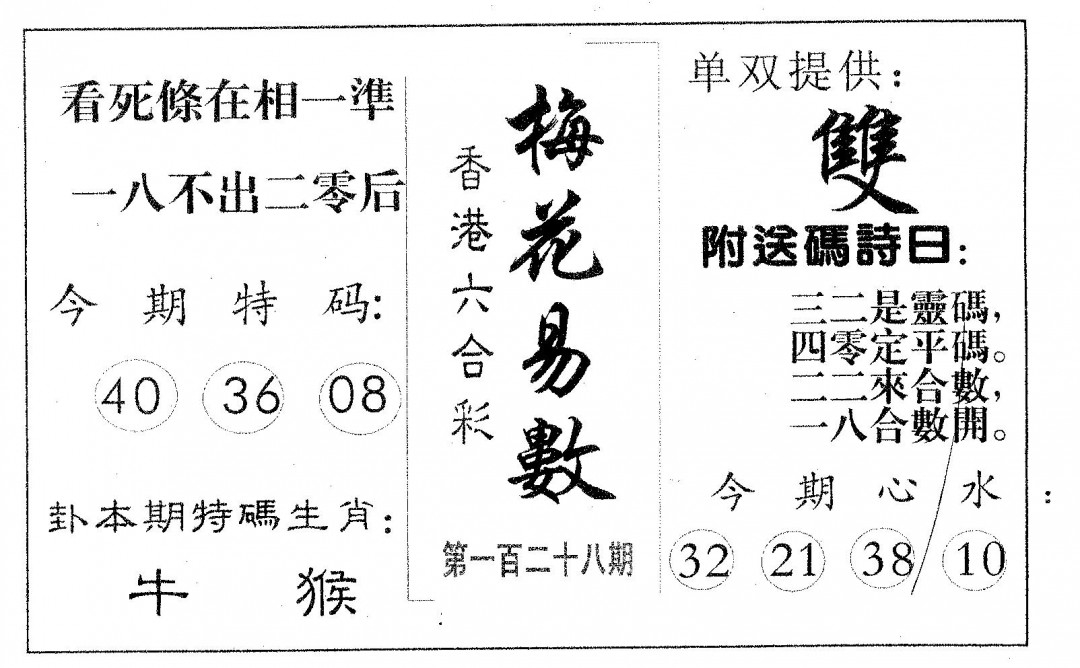 看死條在相一準
一八不出二零后
今期特码:
40 36 08
卦本期特碼生肖:
牛 猴
梅花易數
香港六合彩
第一百二十八期
单双提供:
雙
附送碼詩曰:
三二是靈碼,
四零定平碼。
二二來合數,
一八合數開。
今期心水:
32 21 38 10